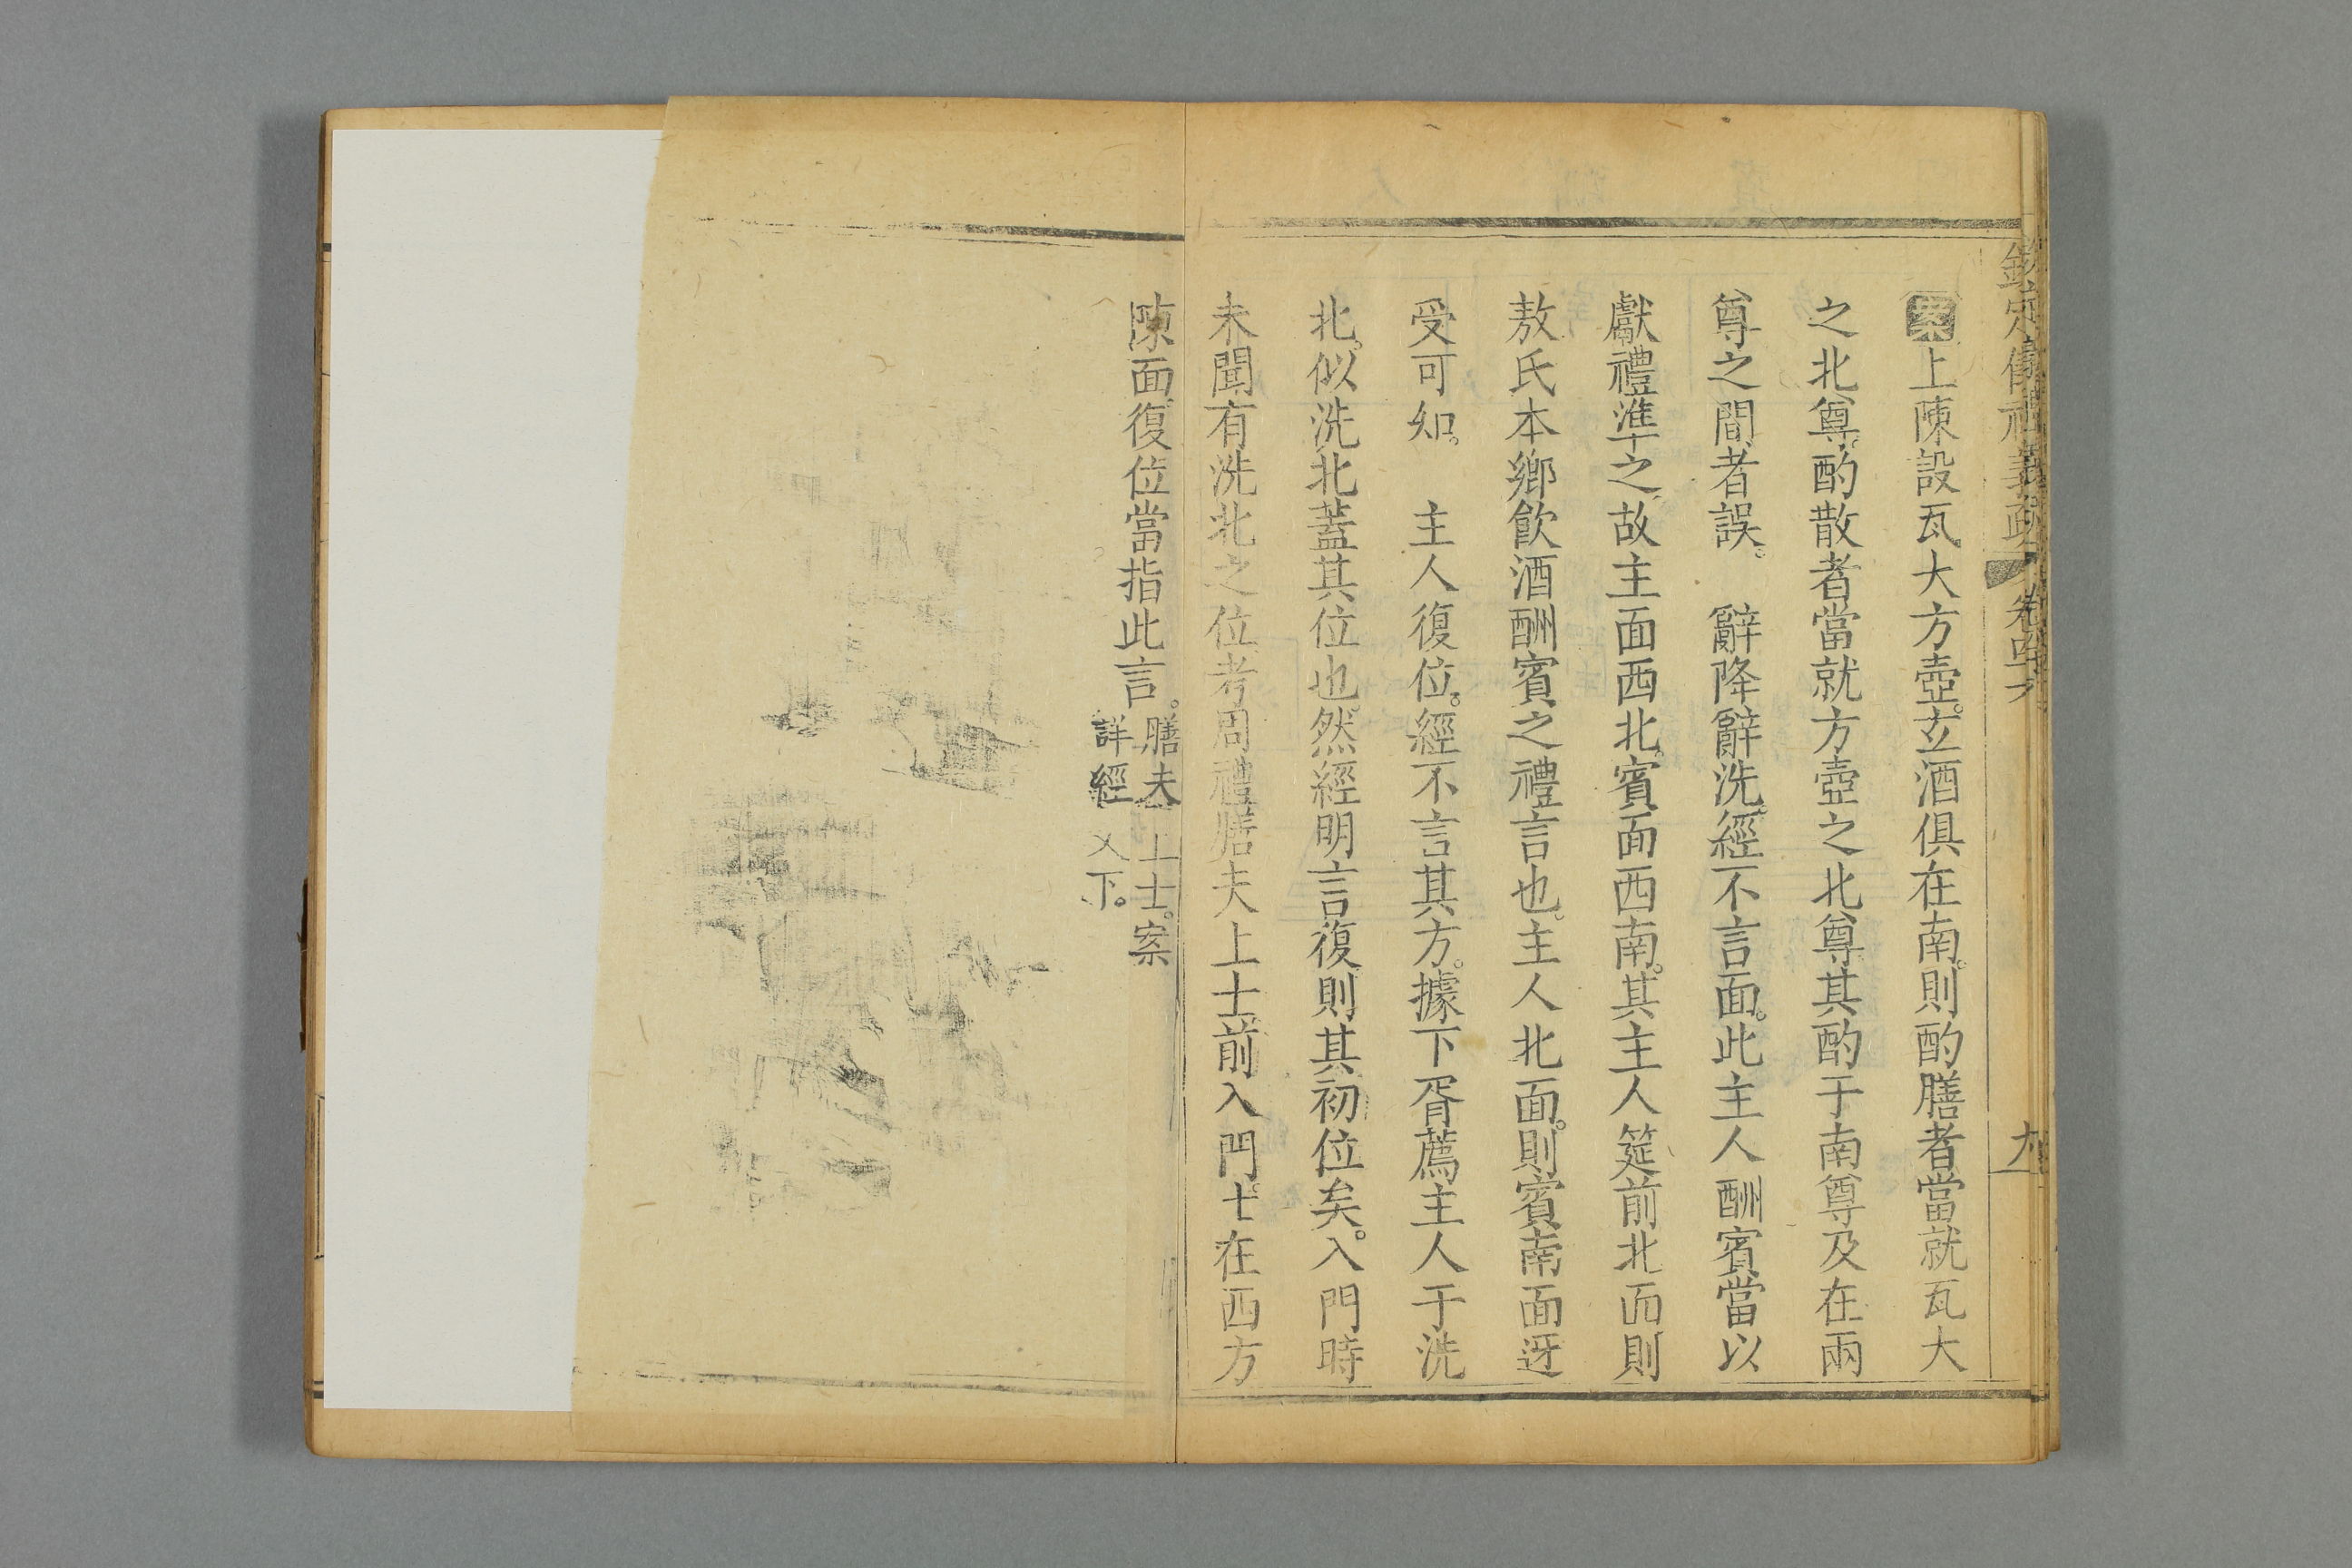 欽定儀禮義疏
卷四十
九
案上陳設瓦大方壺。玄酒俱在南。則酌膳者當就瓦大
之北尊。酌散者當就方壺之北尊其酌于南尊及在兩
尊之間者誤。　辭降辭洗。經不言面。此主人酬賓當以
獻禮準之。故主面西北。賓面西南。其主人筵前北面則
敖氏本鄉飲酒酬賓之禮言也。主人北面。則賓南面迓
受可知。　主人復位。經不言其方。據下胥薦主人于洗
北。似洗北蓋其位也。然經明言復則其初位矣。入門時
未聞有洗北之位考周禮膳夫上士前入門。士在西方
陳面。復位當指此言。
膳夫上士。案
詳經文下。